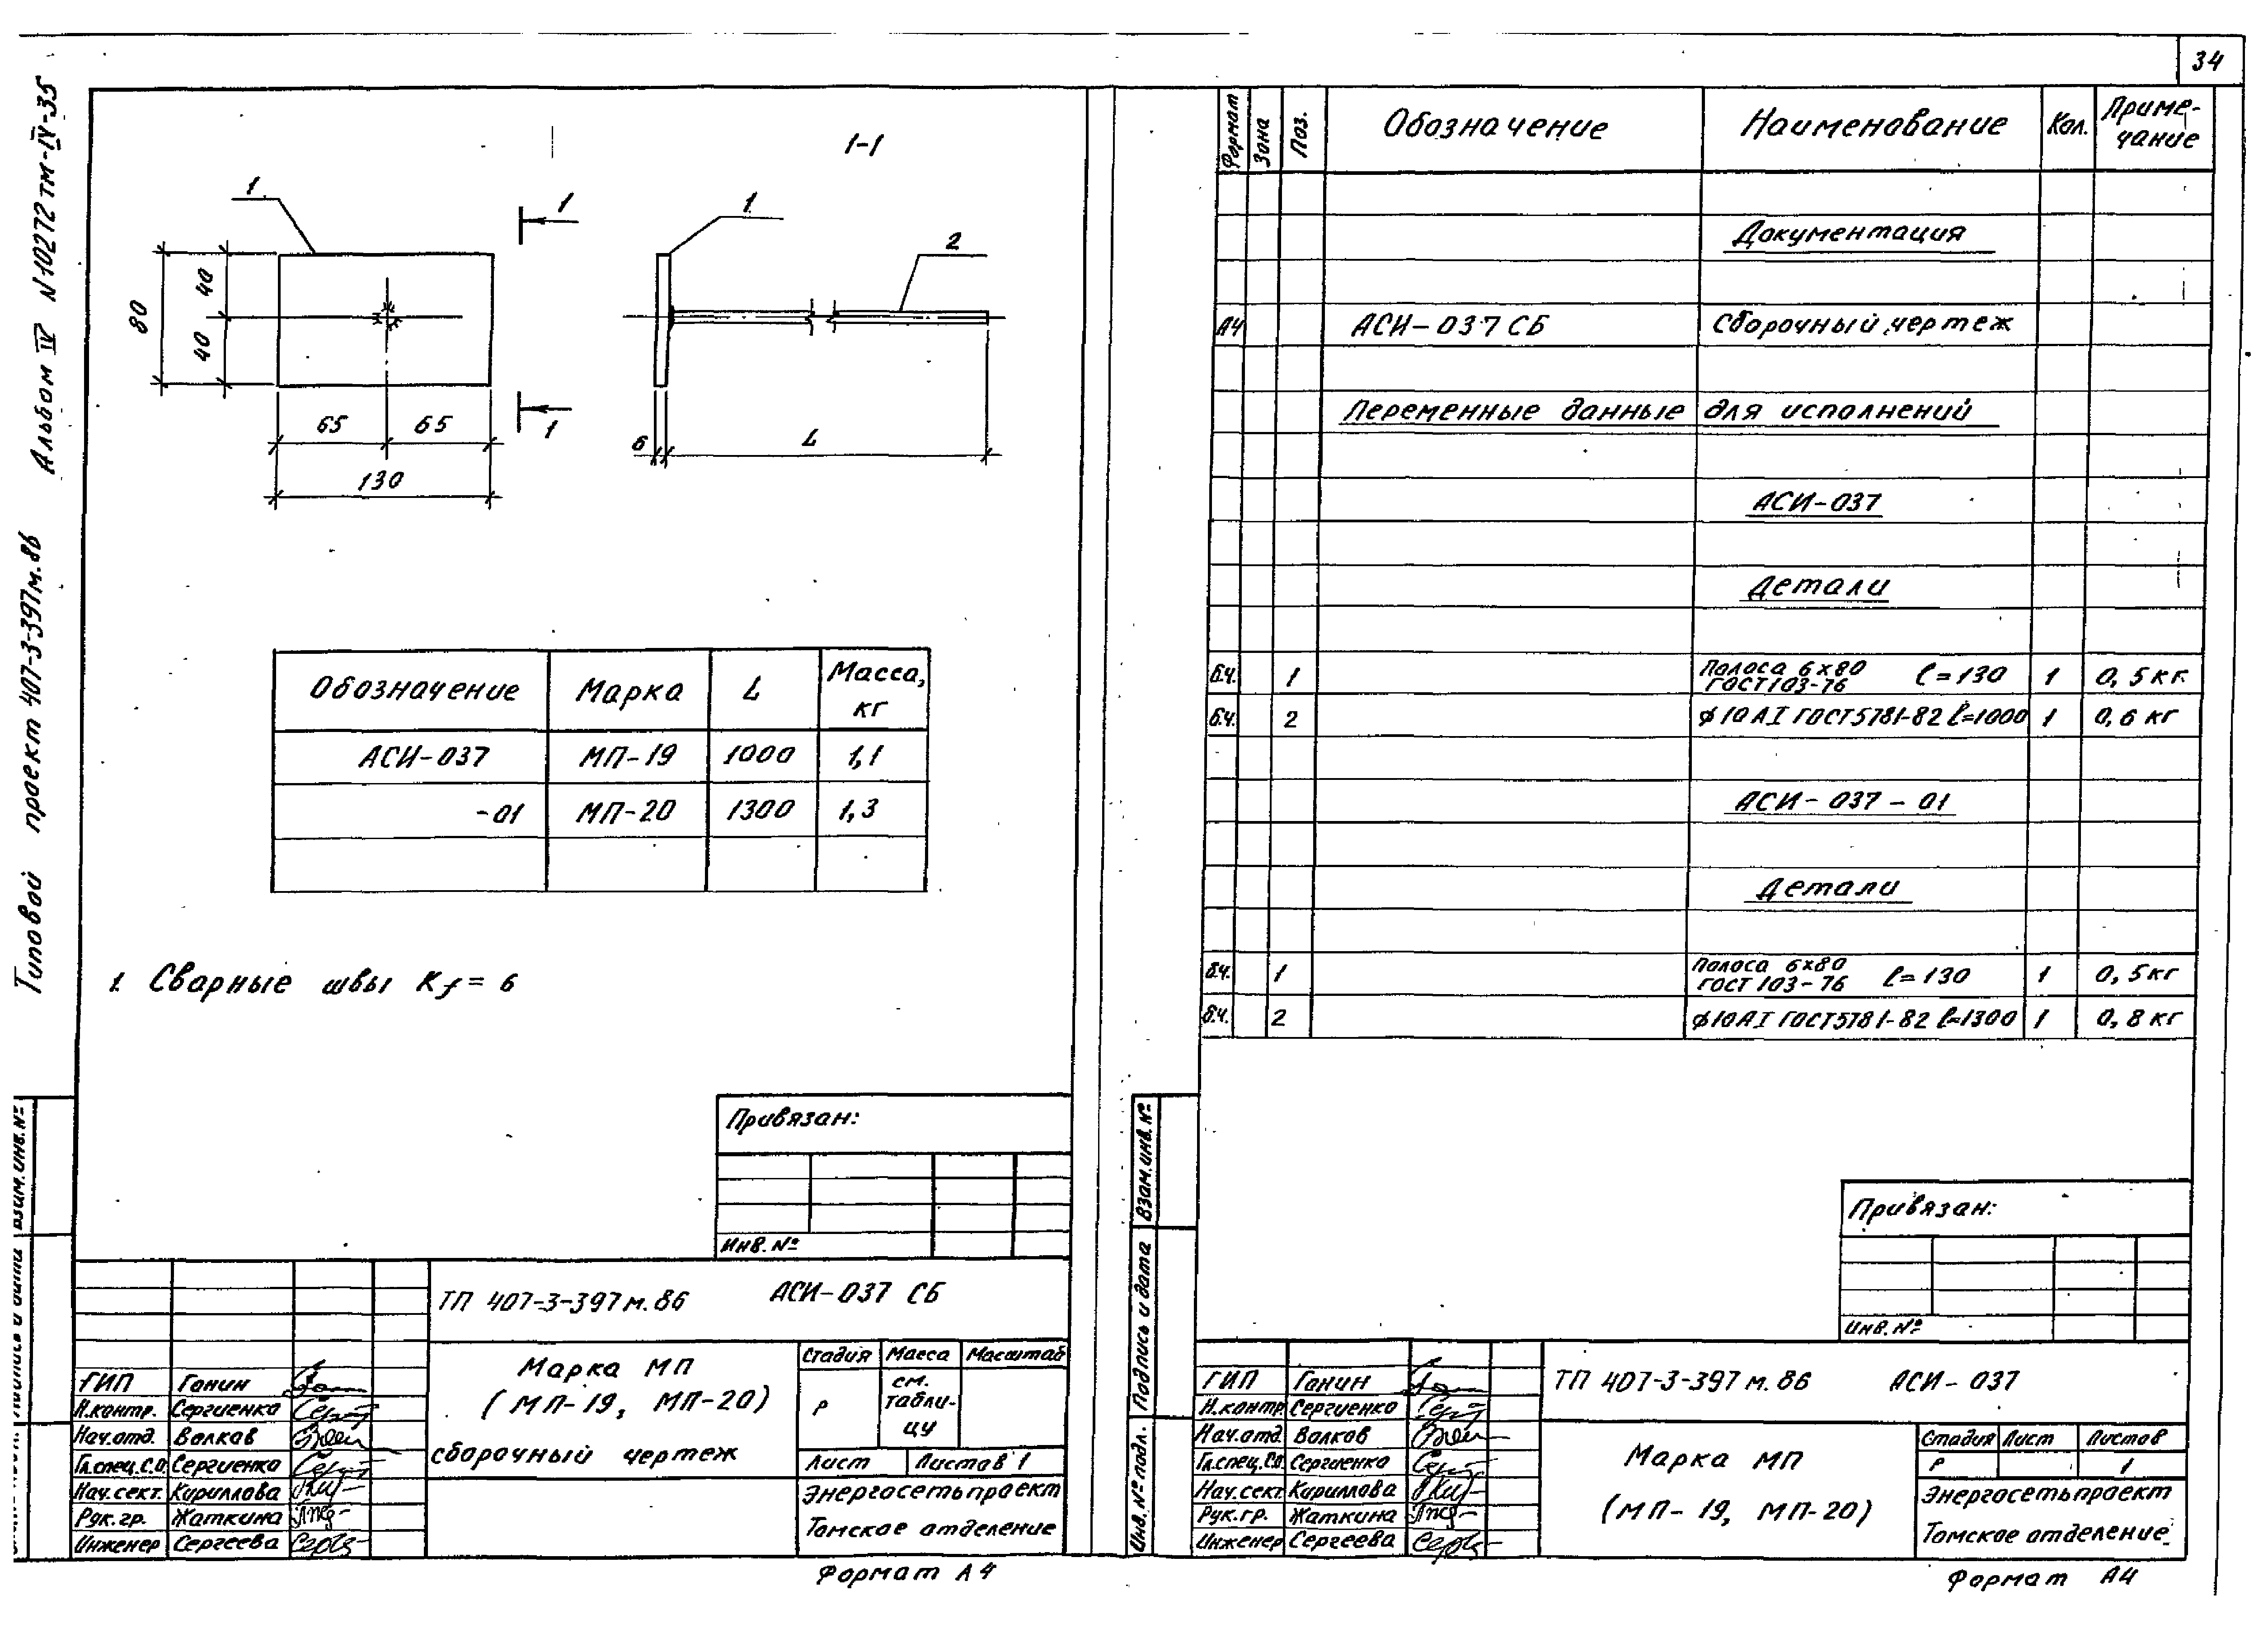 34
Альбом IV N10272тм-IV-35
Типовой проект 407-3-397м.86
1-1
1
1
1
2
1
80
40
40
65 65
130
6 L
Обозначение Марка L Масса, кг
АСИ-037 МП-19 1000 1,1
-01 МП-20 1300 1,3
1. Сварные швы Kf = 6
Привязан:
Инв. №
ТП 407-3-397м.86 АСИ-037 СБ
Марка МП
(МП-19, МП-20)
сборочный чертеж
Стадия Масса Масштаб
Р см. табли-
цу
Лист Листов 1
Энергосетьпроект
Томское отделение
ГИП Ганин
Н.контр. Сергиенко
Нач.отд. Волков
Гл.спец.С.О. Сергиенко
Нач.сект. Кириллова
Рук.гр. Жаткина
Инженер Сергеева
Формат А4
Формат Зона Поз. Обозначение Наименование Кол. Приме-
чание
Документация
А4 АСИ-037 СБ Сборочный чертеж
Переменные данные для исполнений
АСИ-037
Детали
б.ч. 1 Полоса 6х80 ГОСТ 103-76 ℓ=130 1 0,5 кг
б.ч. 2 ф10АI ГОСТ 5781-82 ℓ=1000 1 0,6 кг
АСИ-037-01
Детали
б.ч. 1 Полоса 6х80 ГОСТ 103-76 ℓ=130 1 0,5 кг
б.ч. 2 ф10АI ГОСТ 5781-82 ℓ=1300 1 0,8 кг
Взам.инв.№
Подпись и дата
Инв.№ подл.
Привязан:
Инв.№
ТП 407-3-397м.86 АСИ-037
Марка МП
(МП-19, МП-20)
Стадия Лист Листов
Р 1
Энергосетьпроект
Томское отделение
ГИП Ганин
Н.контр. Сергиенко
Нач.отд. Волков
Гл.спец.С.О. Сергиенко
Нач.сект. Кириллова
Рук.гр. Жаткина
Инженер Сергеева
Формат А4